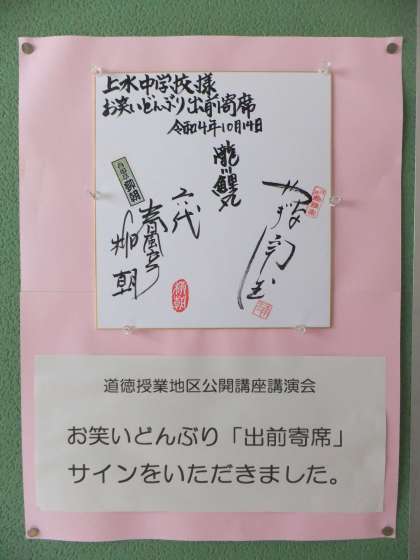 上水中学校様
お笑いどんぶり出前寄席
令和4年10月14日
瀧川鯉丸
六代
春風亭
柳朝
道徳授業地区公開講座講演会
お笑いどんぶり「出前寄席」
サインをいただきました。